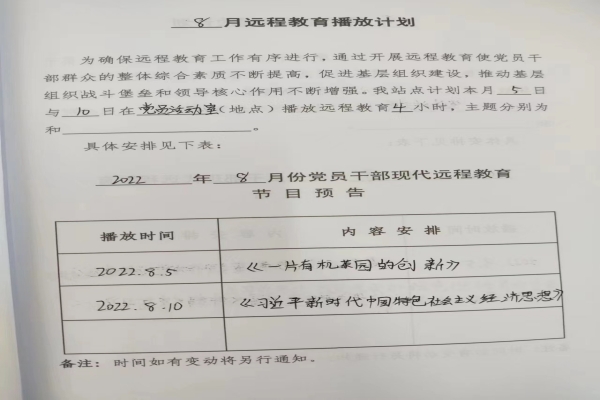 8 月远程教育播放计划
为确保远程教育工作有序进行，通过开展远程教育使党员干
部群众的整体综合素质不断提高，促进基层组织建设，推动基层
组织战斗堡垒和领导核心作用不断增强。我站点计划本月 5 日
与 10 日在党员活动室(地点)播放远程教育 4 小时，主题分别为
和 。
具体安排见下表：
2022 年 8 月份党员干部现代远程教育
节目预告
播放时间 内容安排
2022.8.5 《一片有机茶园的创新》
2022.8.10 《习近平新时代中国特色社会主义经济思想》
备注：时间如有变动将另行通知。